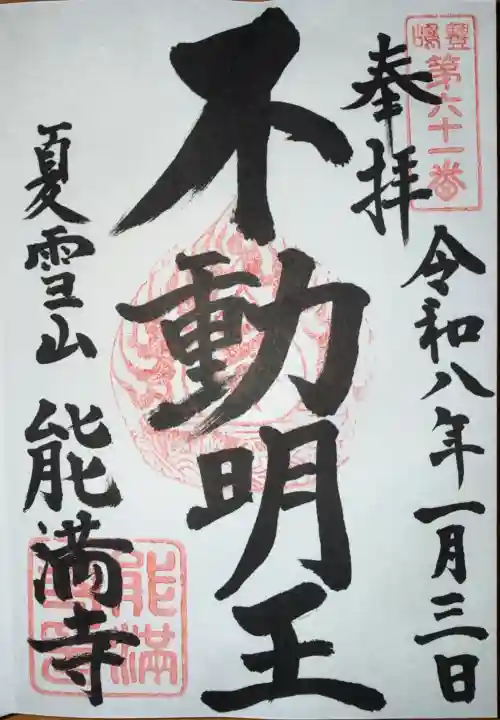 豐嶋
第六十一番
奉拝
令和八年一月三日
不動明王
夏雪山 能満寺
能満